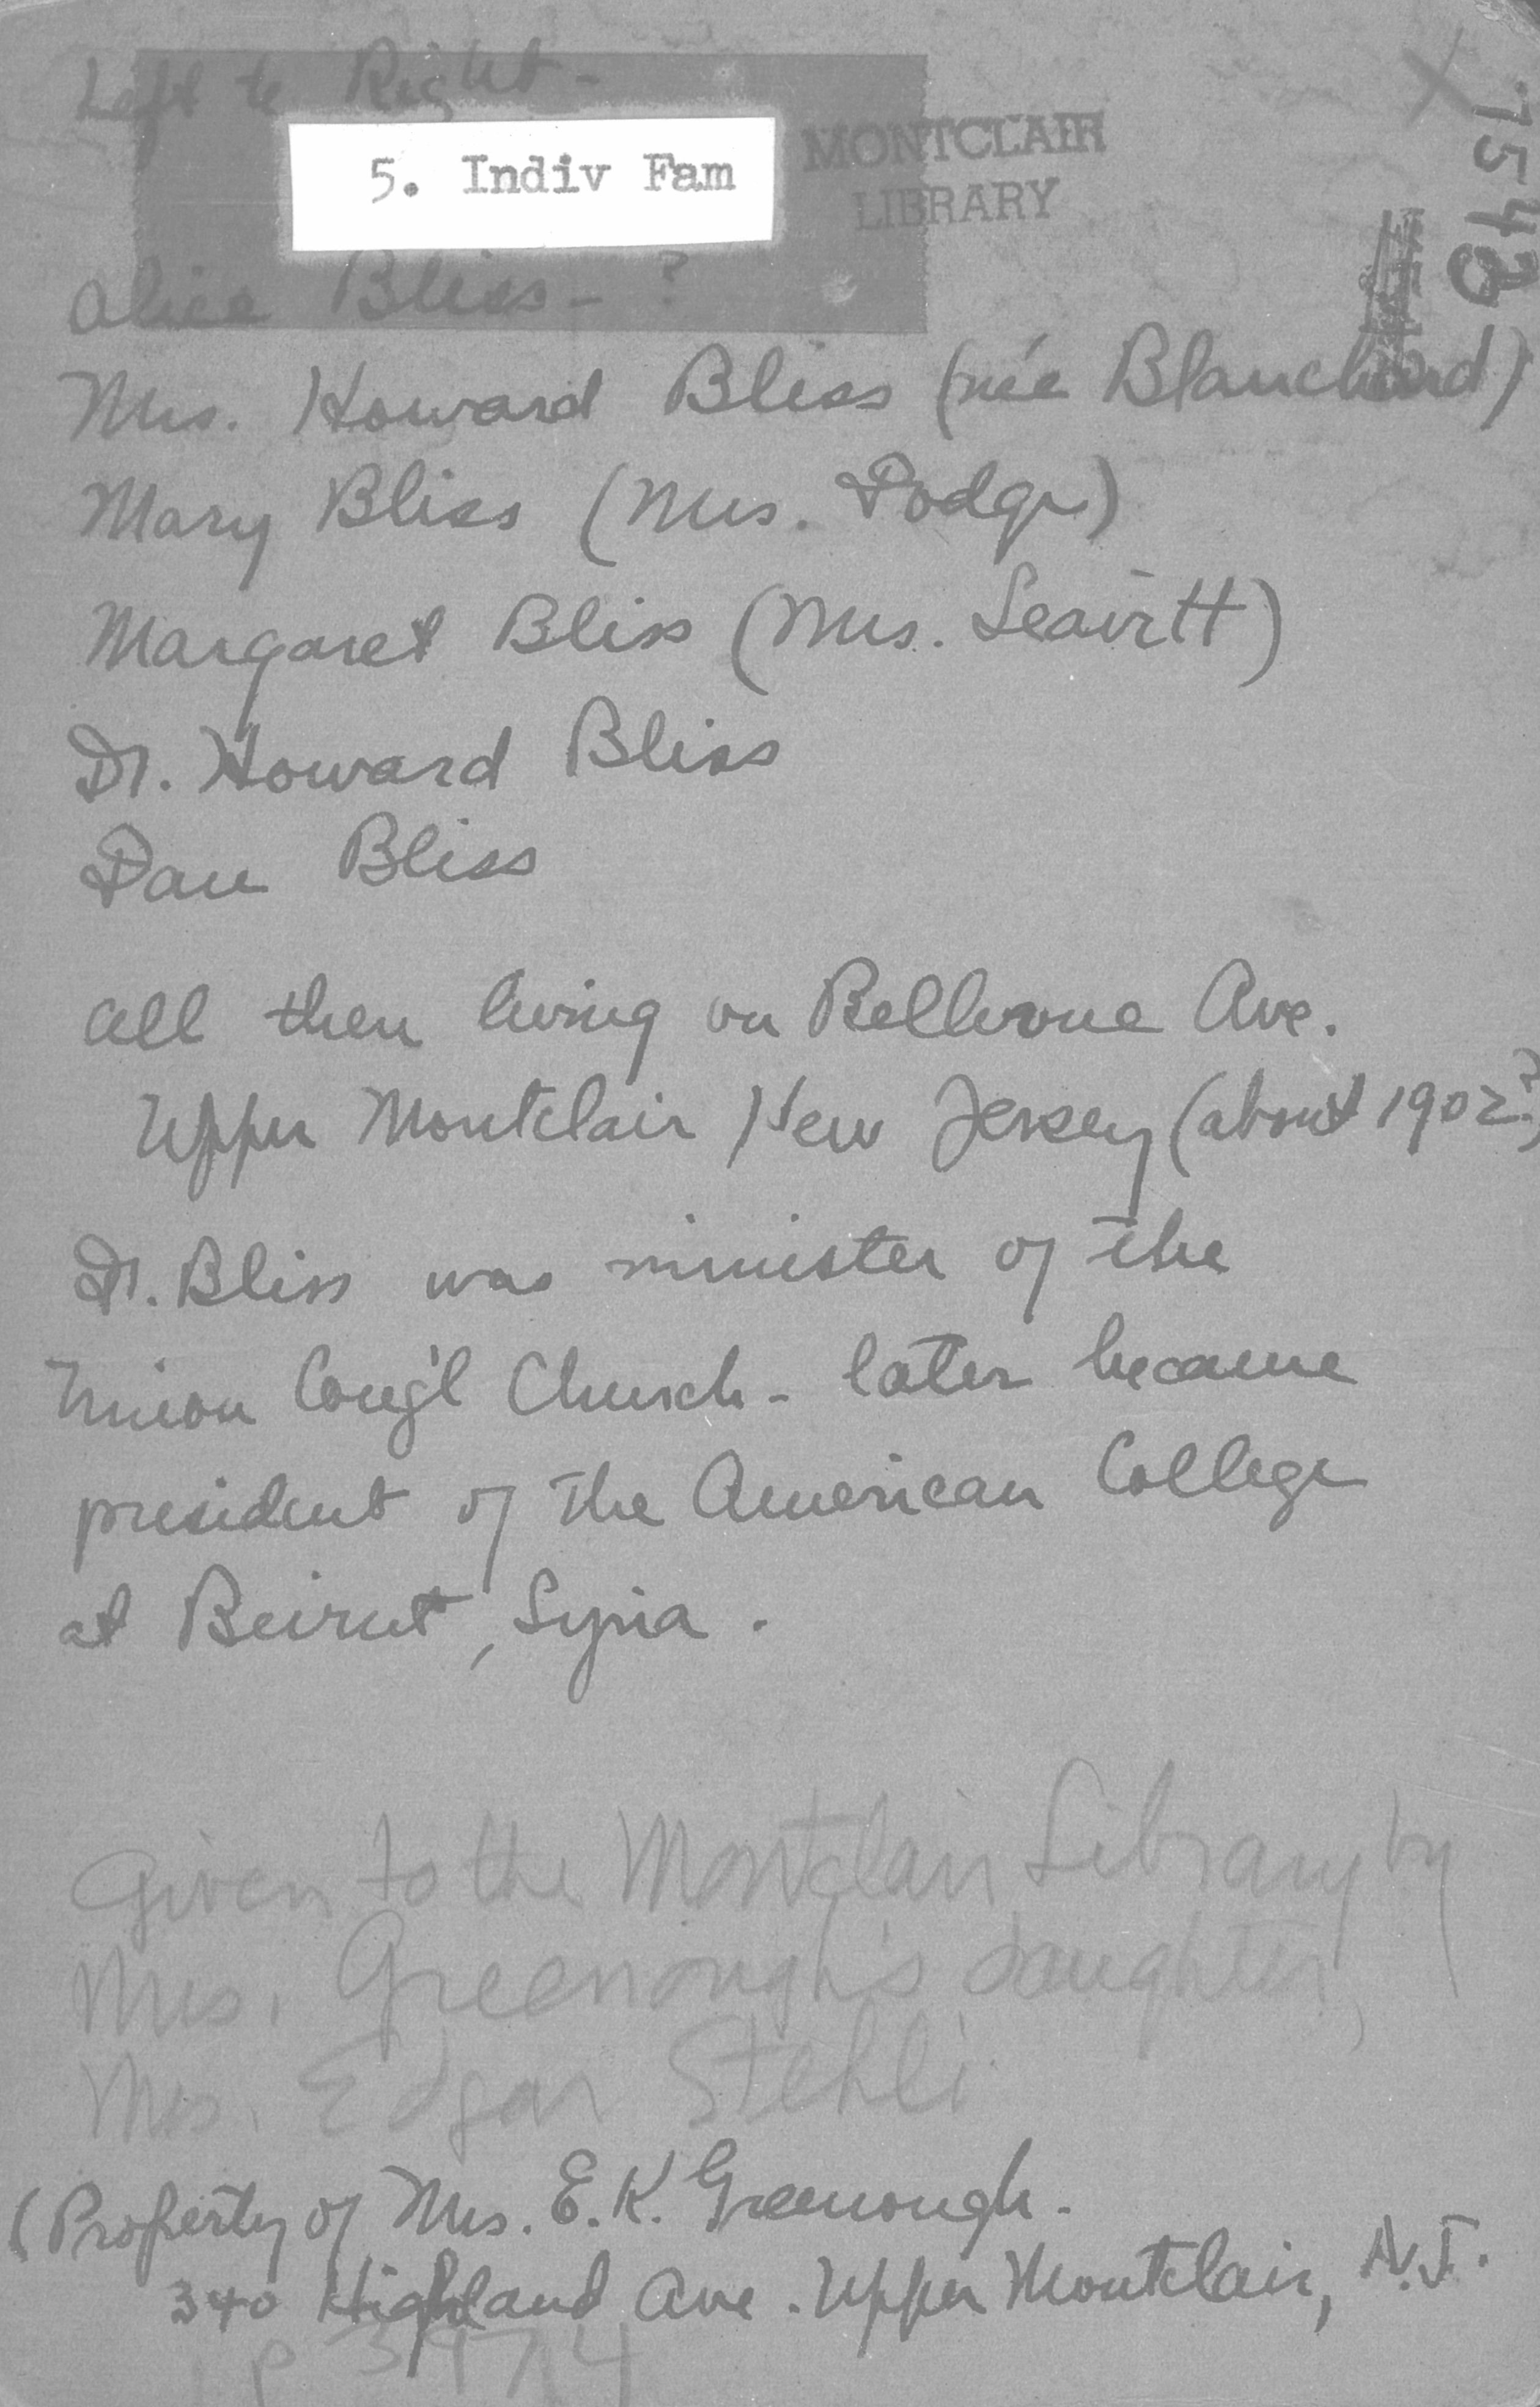 Left to Right -
5. Indiv Fam
MONTCLAIR
LIBRARY
7542
Alice Bliss - ?
Mrs. Howard Bliss (née Blanchard)
Mary Bliss (Mrs. Dodge)
Margaret Bliss (Mrs. Leavitt)
Dr. Howard Bliss
Dan Bliss
All then living on Bellevue Ave.
Upper Montclair New Jersey (about 1902?)
Dr. Bliss was minister of the
Union Cong'l Church - later became
president of the American College
at Beirut, Syria.
Given to the Montclair Library by
Mrs. Greenough's daughter,
Mrs. Edgar Stehli
(Property of Mrs. E. K. Greenough -
340 Highland Ave. Upper Montclair, N.J.
p 3974